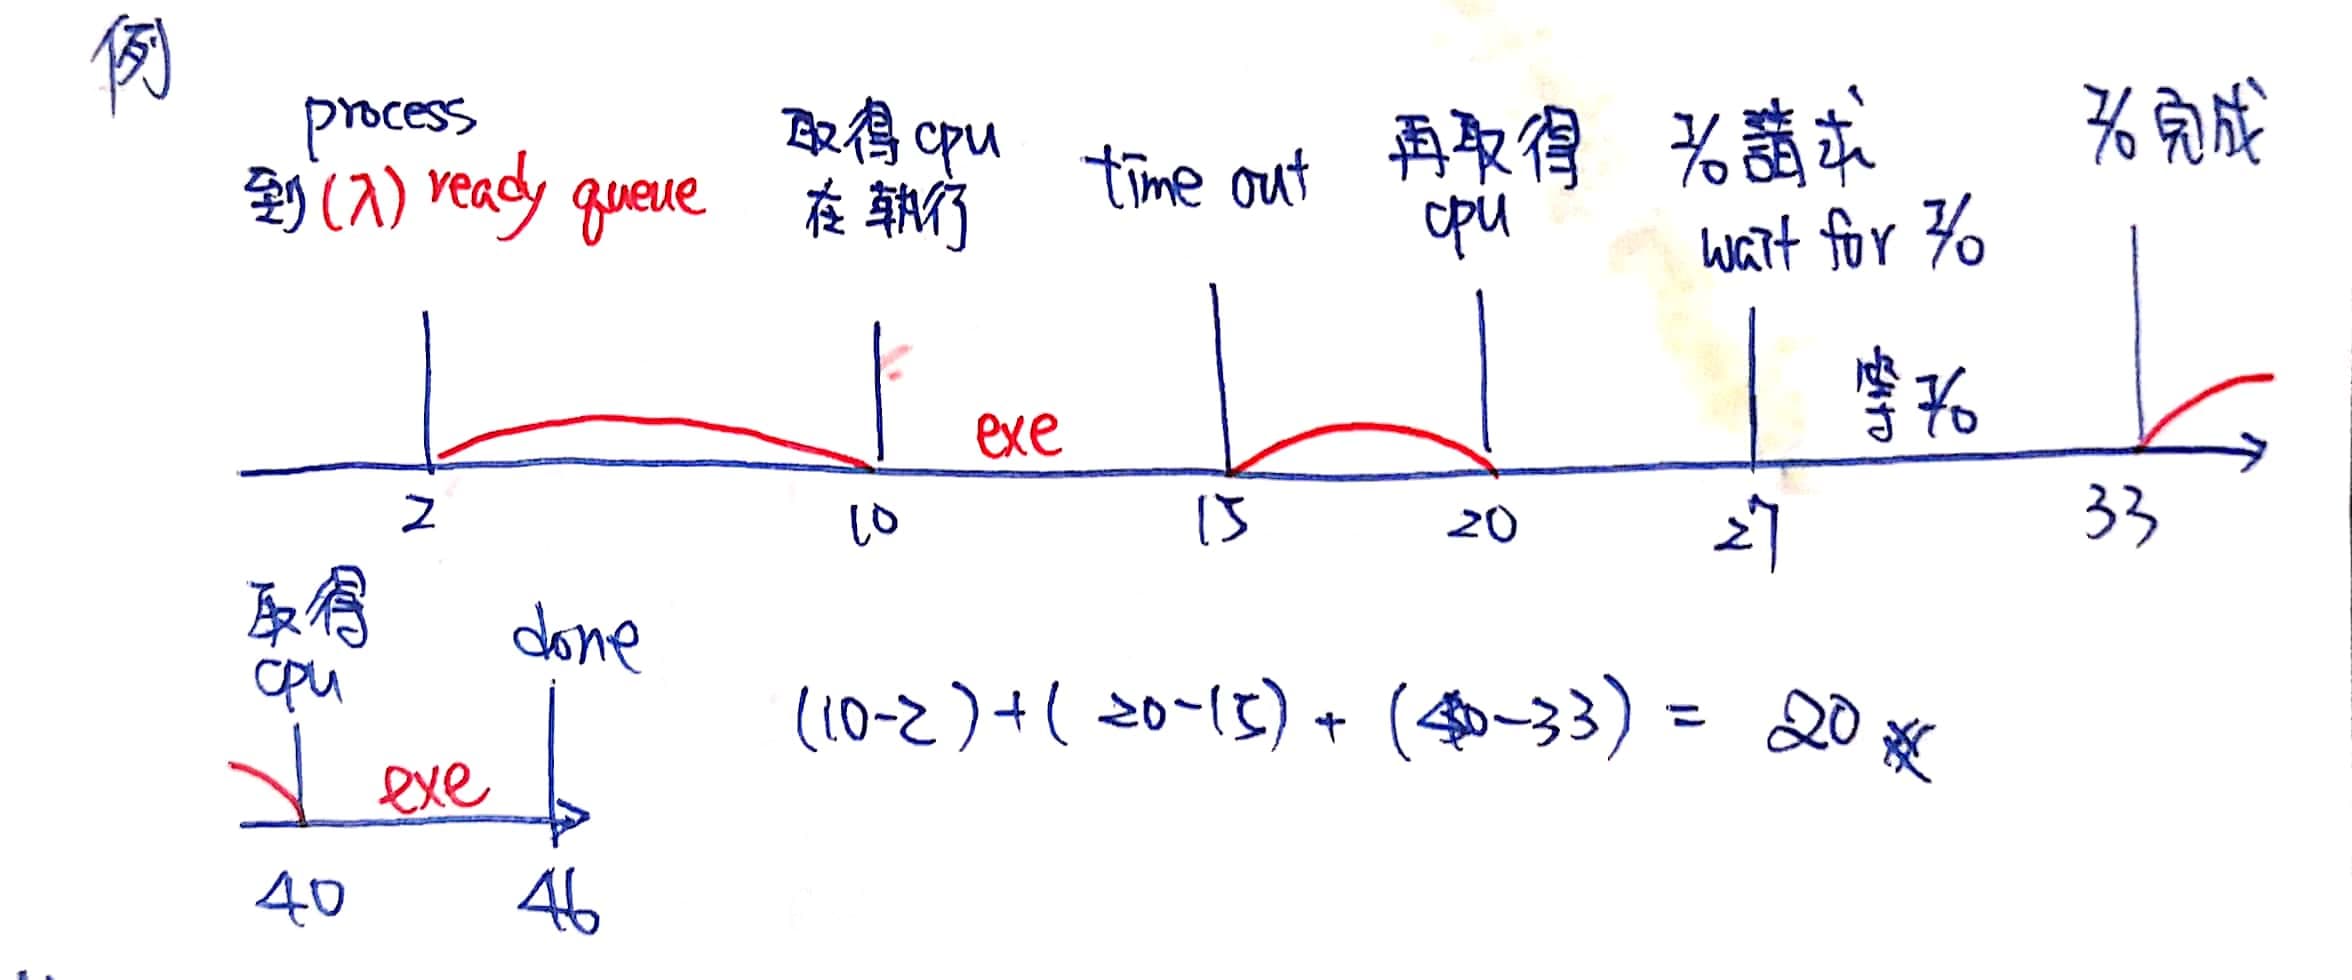 例
process
到(入) ready queue
取得cpu
在執行
time out
再取得
cpu
I/O請求
wait for I/O
I/O完成
exe
等I/O
2
10
15
20
27
33
取得
cpu
done
exe
40
46
(10-2)+(20-15)+(40-33)=20